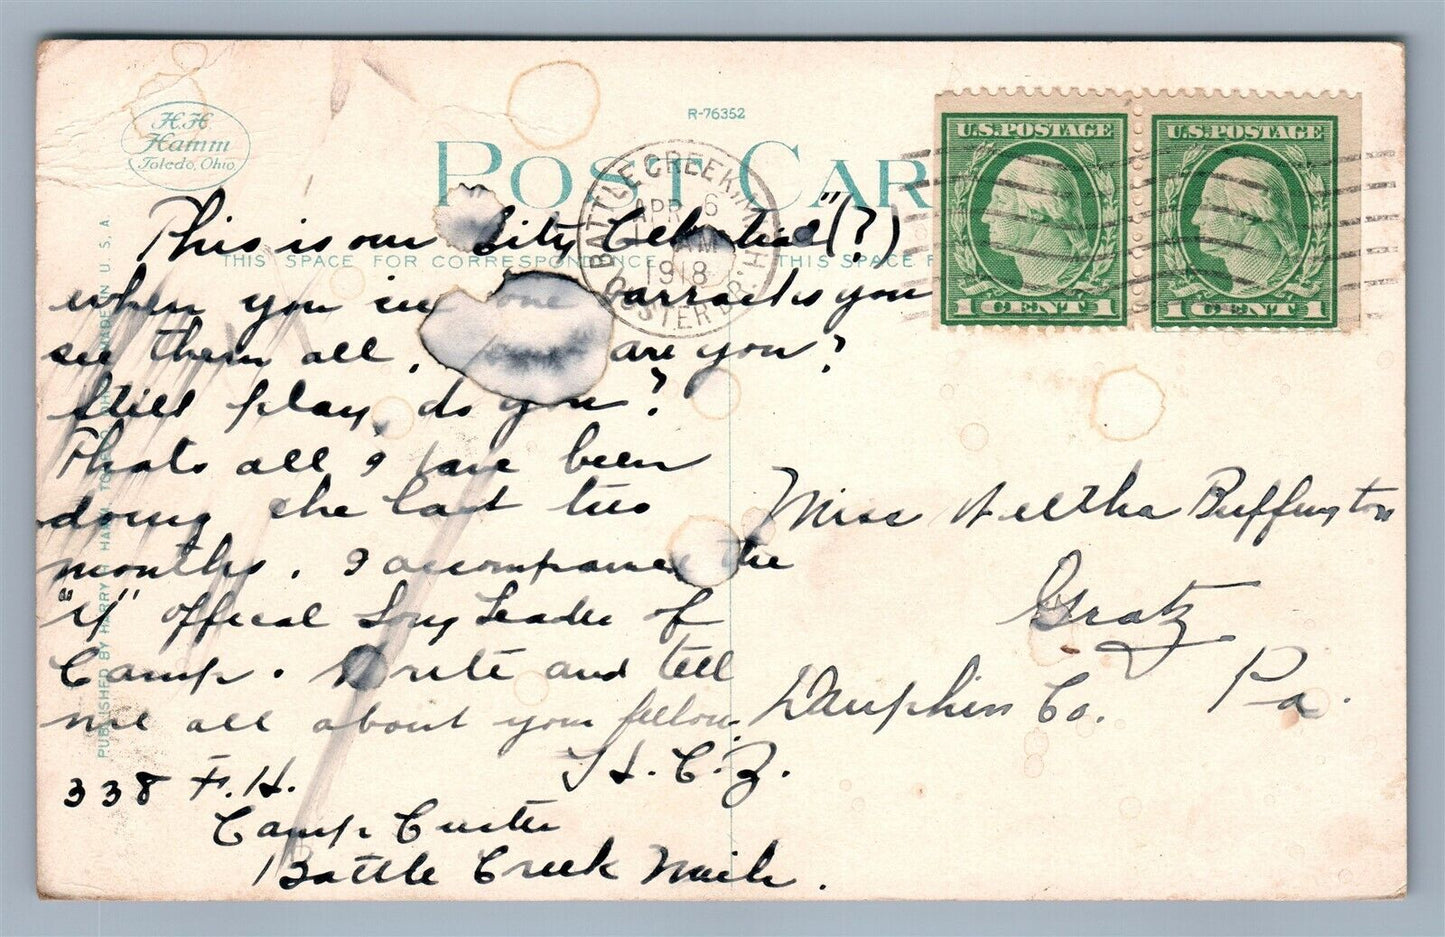 H.H.
Hamm
Toledo, Ohio
R-76352
POST CAR
BATTLE CREEK, MICH.
APR 6
AM
1918
CUSTER BR.
THIS SPACE FOR CORRESPONDENCE
THIS SPACE F
U.S. POSTAGE
1 CENT 1
U.S. POSTAGE
1 CENT 1
This is our "City Celestial" (?)
when you see one barracks you
see them all, are you?
Still play, do you?
Thats all I have been
doing the last two
months. I accompanied the
"Y" offical Song Leader of
Camp. Write and tell
me all about your fellow.
H.C.Z.
338 F.H.
Camp Custer
Battle Creek Mich.
Miss Bertha Buffington
Gratz
Dauphin Co. Pa.
PUBLISHED BY HARRY H. HAMM, TOLEDO, OHIO MADE IN U.S.A